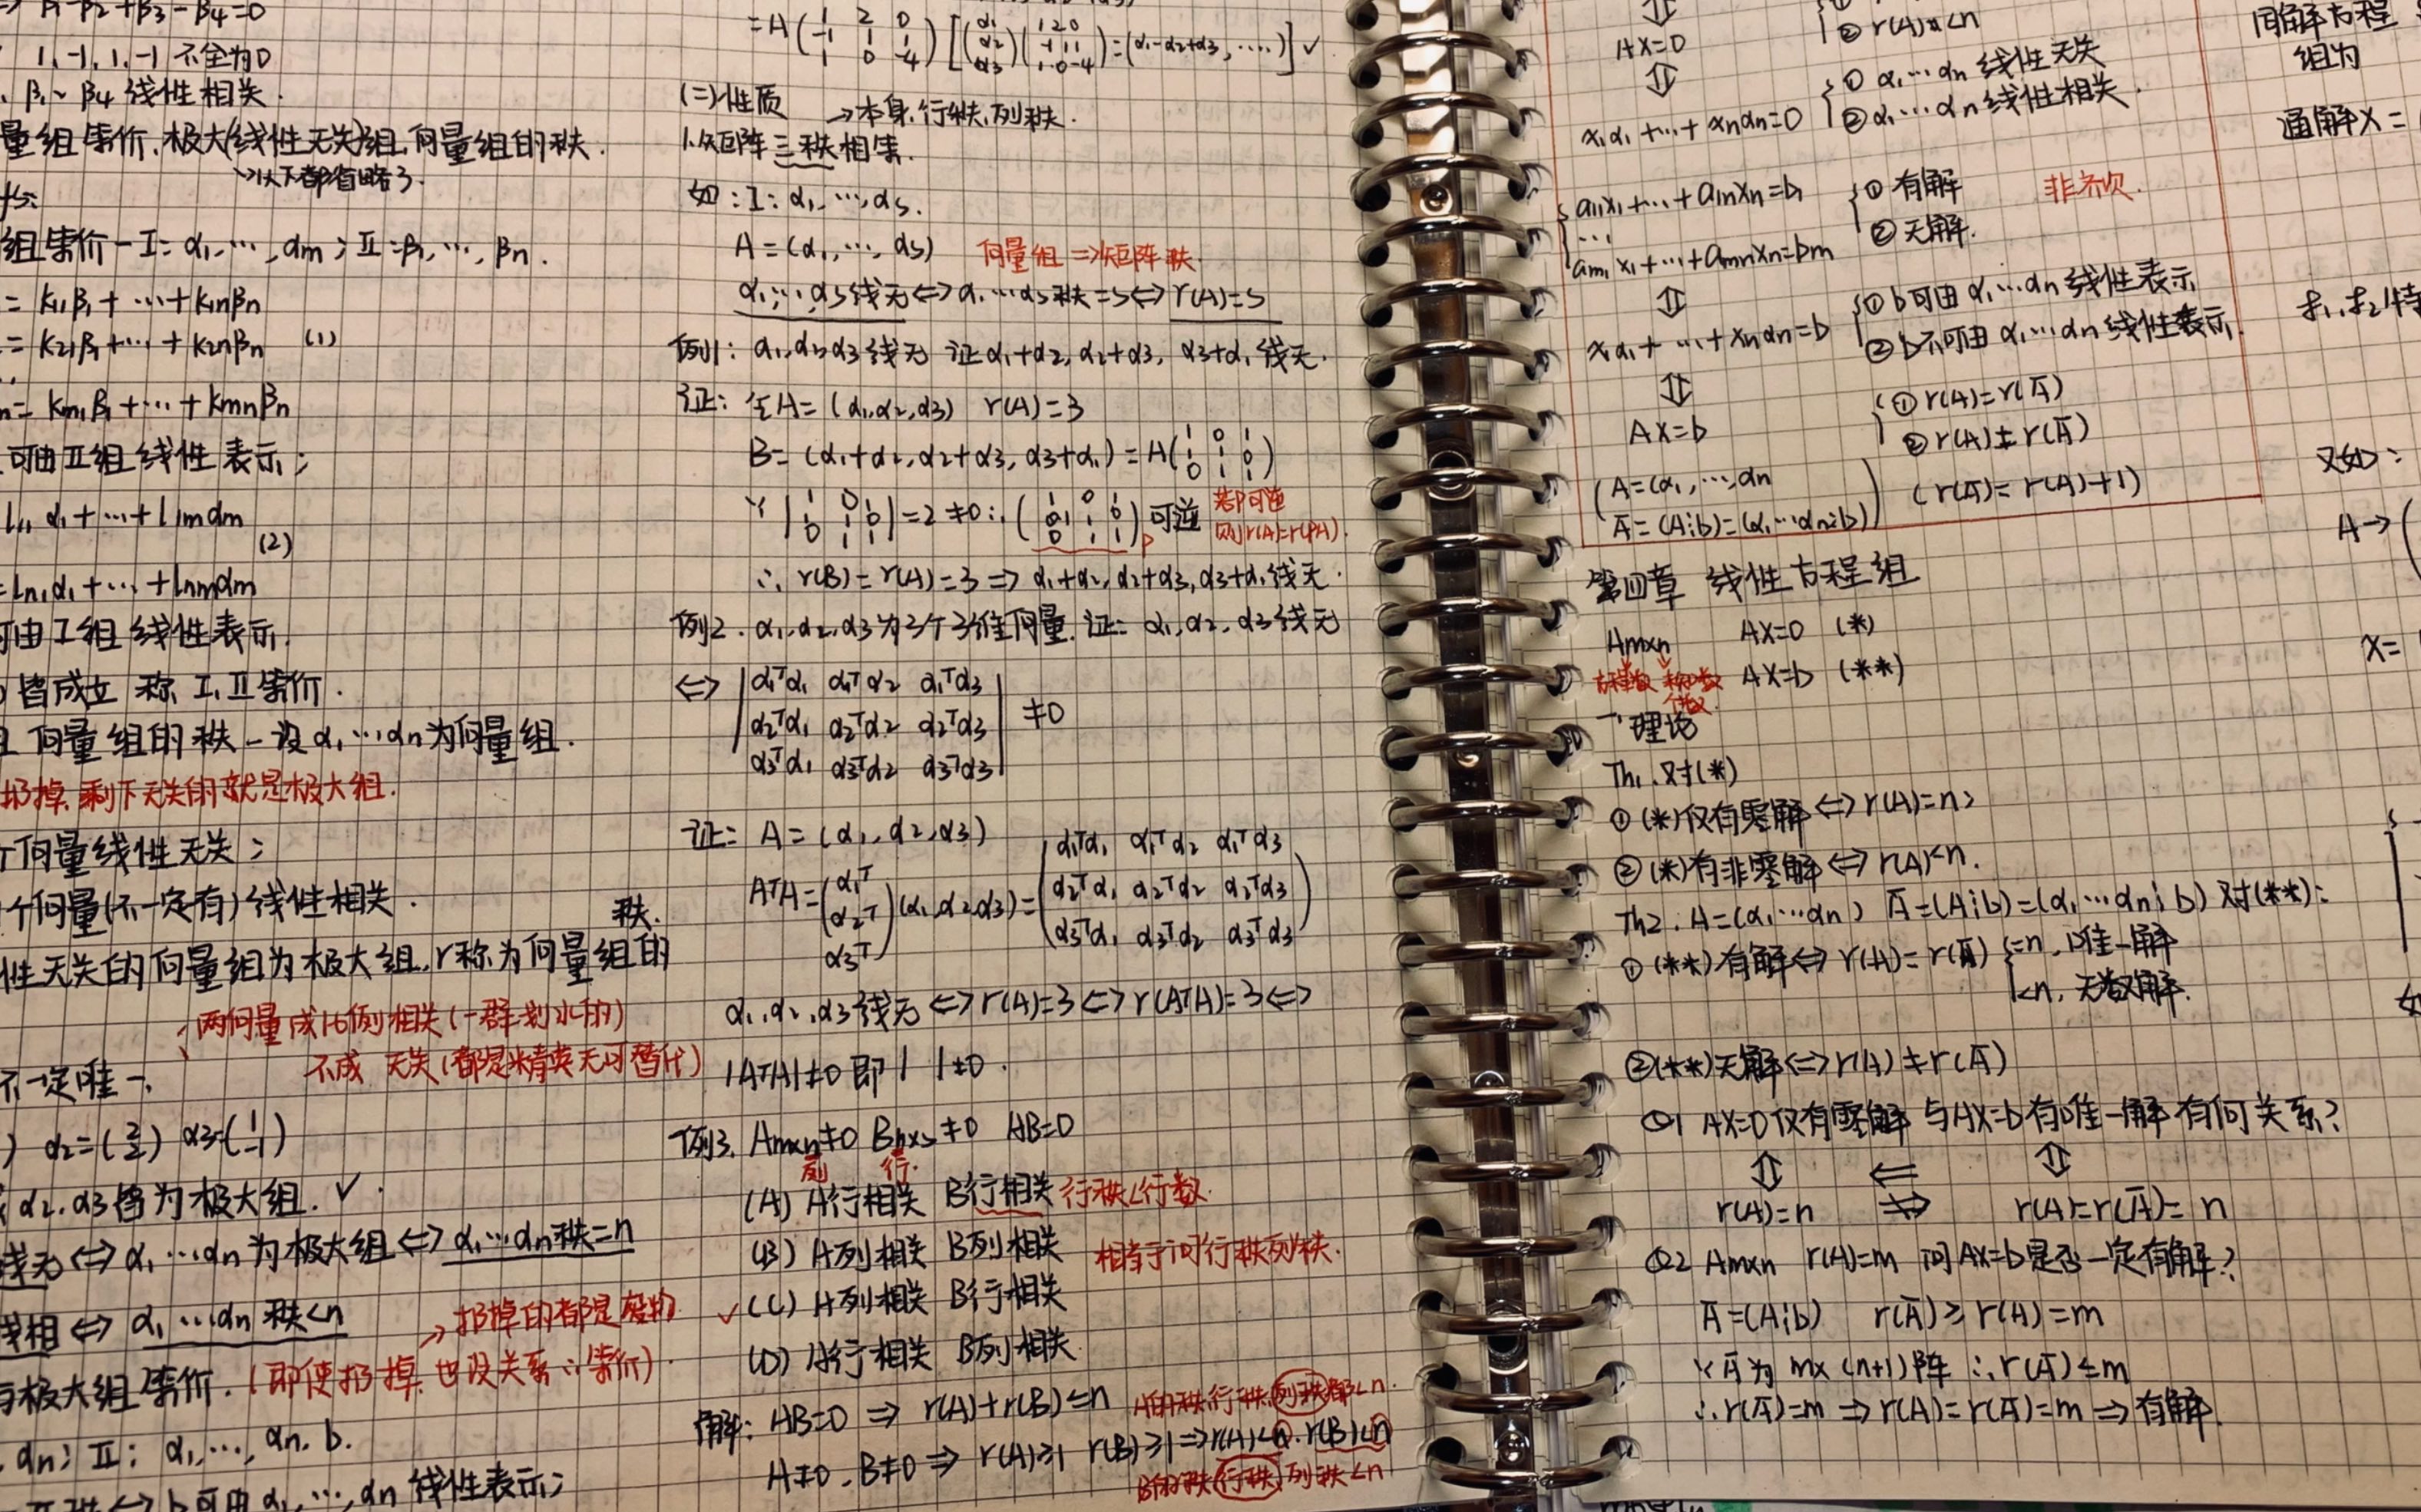 β1-β2+β3-β4=0
1,-1,1,-1 不全为0
β1~β4 线性相关.
量组等价.极大(线性无关)组.向量组的秩.
→以下都省略了.
组等价-I:α1,…,αm;II:β1,…,βn.
=k11β1+…+k1nβn
=k21β1+…+k2nβn (1)
=km1β1+…+kmnβn
可由II组线性表示;
l11α1+…+l1mαm
(2)
=ln1α1+…+lnmαm
可由I组线性表示.
皆成立 称 I,II等价.
向量组的秩-设α1…αn为向量组.
扔掉,剩下无关的就是极大组.
个向量线性无关;
个向量(不一定有)线性相关.
性无关的向量组为极大组,r称为向量组的秩.
两向量成比例相关(一群划水的)
不成 无关(都是精英无可替代)
不一定唯一.
α2=(2 2) α3=(1 -1)
α2.α3皆为极大组.✓
线无⇔α1…αn为极大组⇔α1…αn秩=n
线相⇔α1…αn秩<n
→扔掉的都是废物
与极大组等价.(即使扔掉,也没关系∵等价).
αn;II:α1,…,αn.b.
b可由α1,…,αn线性表示;
=A(1 2 0
-1 1 1
1 0 -4)[(α1 α2 α3)(1 2 0
-1 1 1
1 0 -4)=(α1-α2+α3,……)]✓
(二)性质
→本身.行秩.列秩.
1.矩阵三秩相等.
如:I:α1,…,αs.
A=(α1,…,αs) 向量组⇒矩阵秩
α1,…,αs线无⇔α1…αs秩=s⇔r(A)=s
例1:α1,α2,α3线无 证α1+α2,α2+α3,α3+α1线无.
证:令A=(α1,α2,α3) r(A)=3
B=(α1+α2,α2+α3,α3+α1)=A(1 0 1
1 1 0
0 1 1)
∵|1 0 1
1 1 0
0 1 1|=2≠0∴(1 0 1
1 1 0
0 1 1)可逆 若P可逆
P 则r(A)=r(PA).
∴r(B)=r(A)=3⇒α1+α2,α2+α3,α3+α1线无.
例2.α1,α2,α3为3个3维向量.证:α1,α2,α3线无
⇔|α1ᵀα1 α1ᵀα2 α1ᵀα3
α2ᵀα1 α2ᵀα2 α2ᵀα3
α3ᵀα1 α3ᵀα2 α3ᵀα3|≠0
证:A=(α1,α2,α3)
AᵀA=(α1ᵀ
α2ᵀ
α3ᵀ)(α1,α2,α3)=(α1ᵀα1 α1ᵀα2 α1ᵀα3
α2ᵀα1 α2ᵀα2 α2ᵀα3
α3ᵀα1 α3ᵀα2 α3ᵀα3)
α1,α2,α3线无⇔r(A)=3⇔r(AᵀA)=3⇔
|AᵀA|≠0即| |≠0.
例3.Am×n≠0 Bn×s≠0 AB=0
列 行.
(A) A行相关 B行相关 行秩<行数.
(B) A列相关 B列相关 相当于问行秩列秩.
✓(C) A列相关 B行相关
(D) A行相关 B列相关.
解:AB=0⇒r(A)+r(B)≤n A的秩,行秩,列秩都<n.
A≠0.B≠0⇒r(A)≥1 r(B)≥1⇒r(A)<n.r(B)<n
B的秩,行秩,列秩<n
⇕
②r(A)<n
AX=0
⇕
x1α1+…+xnαn=0 {①α1…αn线性无关
②α1…αn线性相关.
{a11x1+…+a1nxn=b1 {①有解 非齐次.
…
am1x1+…+amnxn=bm ②无解.
⇕
x1α1+…+xnαn=b {①b可由α1…αn线性表示
②b不可由α1…αn线性表示.
⇕
AX=b {①r(A)=r(Ā)
②r(A)≠r(Ā)
(A=(α1,…,αn
Ā=(A¦b)=(α1…αn¦b)) (r(Ā)=r(A)+1)
第四章 线性方程组
Am×n AX=0 (*)
方程数 未知数个数. AX=b (**)
一、理论
Th1.对(*)
①(*)仅有零解⇔r(A)=n;
②(*)有非零解⇔r(A)<n.
Th2.A=(α1…αn) Ā=(A¦b)=(α1…αn¦b)对(**):
①(**)有解⇔r(A)=r(Ā){=n,唯一解
<n,无数解.
②(**)无解⇔r(A)≠r(Ā)
Q1 AX=0仅有零解与AX=b有唯一解有何关系?
⇕ ⇐ ⇕
r(A)=n ⇏ r(A)=r(Ā)=n
Q2 Am×n r(A)=m 问AX=b是否一定有解?
Ā=(A¦b) r(Ā)≥r(A)=m
∵Ā为m×(n+1)阵∴r(Ā)≤m
∴r(Ā)=m⇒r(A)=r(Ā)=m⇒有解.
同解方程
组为
通解X=
又如:
A→(
X=